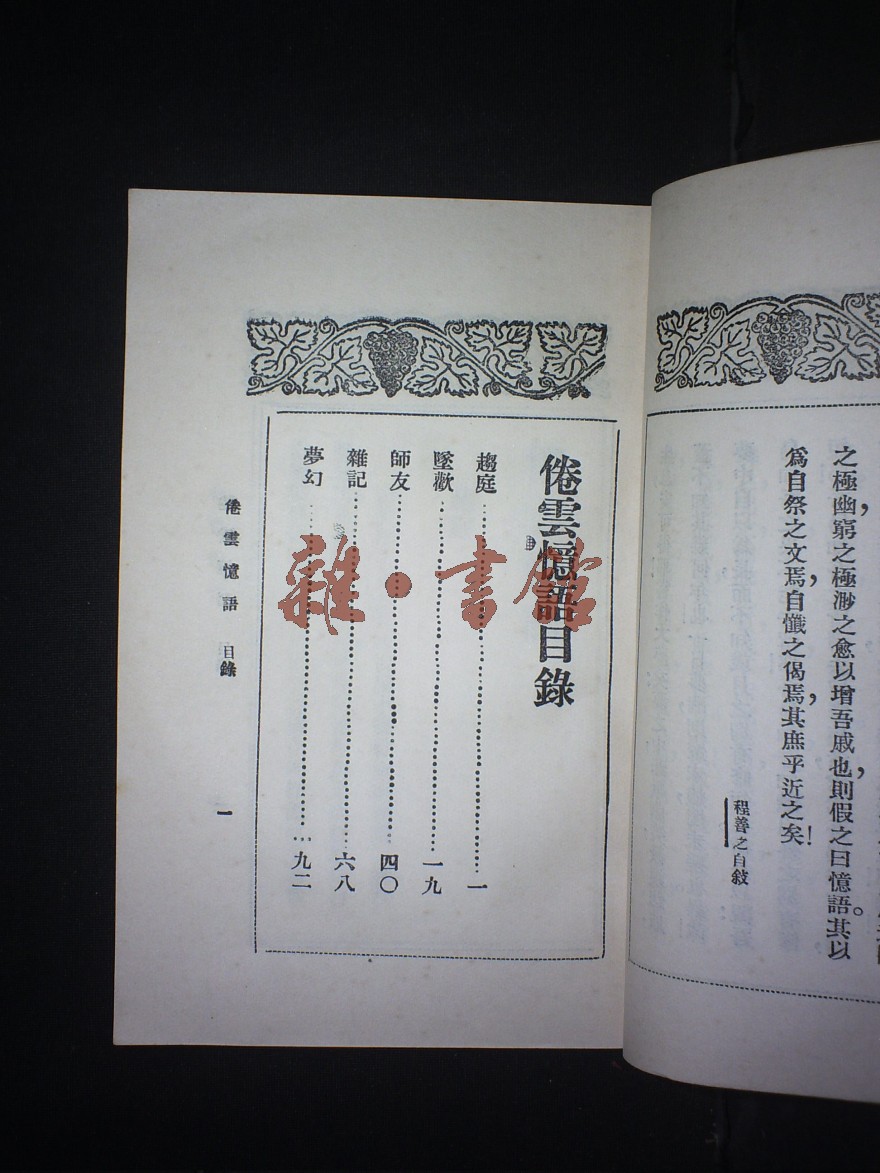 之極幽,窮之極渺之愈以增吾戚也,則假之曰憶語。其以
爲自祭之文焉,自懺之偈焉,其庶乎近之矣!
程善之自敍
倦雲憶語目錄
趨庭……一
墜歡……一九
師友……四〇
雜記……六八
夢幻……九二
倦雲憶語 目錄
一
雜·書館